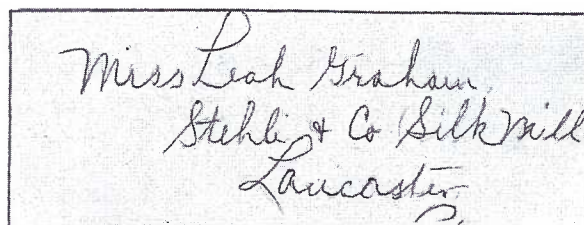 Miss Leah Graham
Stehli & Co Silk Mill
Lancaster